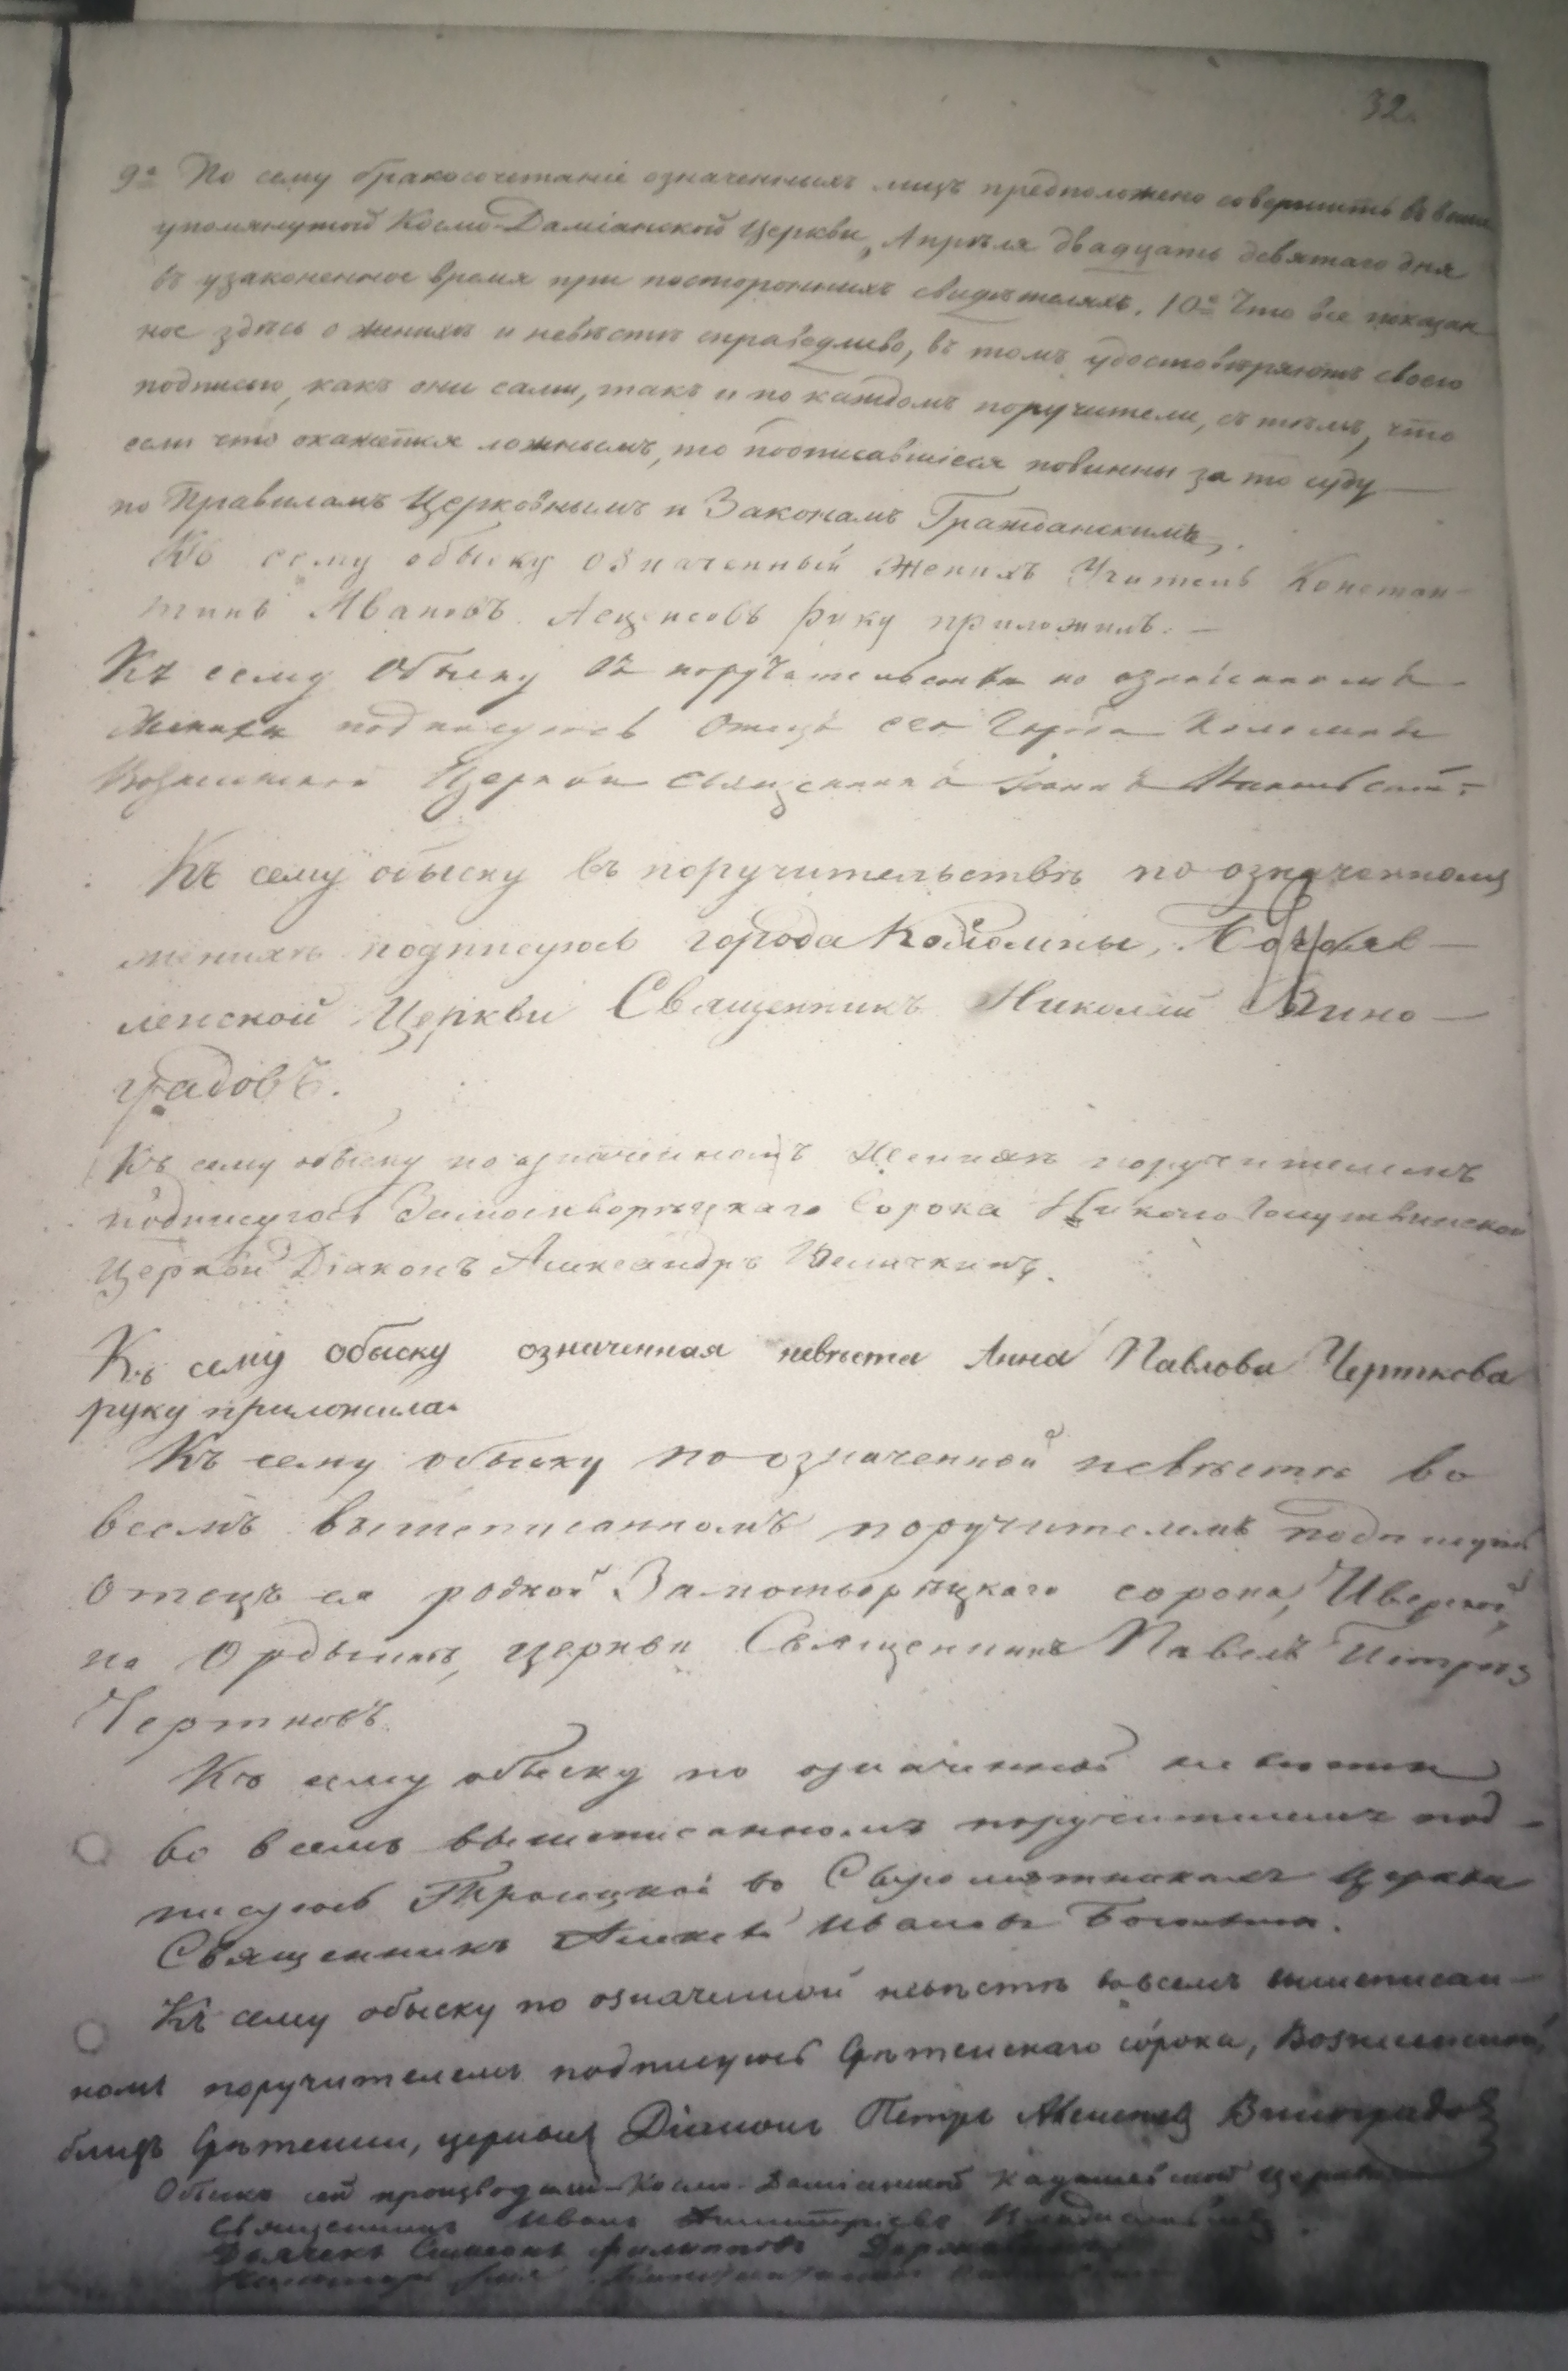 32.
9е По сему бракосочетаніе означенныхъ лицъ предположено совершить въ выше
упомянутой Космо-Даміанской Церкви, Апрѣля двадцать девятаго дня
въ узаконенное время при постороннихъ свидѣтеляхъ. 10е Что все показан
ное здѣсь о женихѣ и невѣстѣ справедливо, въ томъ удостовѣряютъ своею
подписью, какъ они сами, такъ и по каждомъ поручители, съ тѣмъ, что
если что окажется ложнымъ, то подписавшіеся повинны за то суду
по Правиламъ Церковнымъ и Законамъ Гражданскимъ.
Къ сему обыску означенный Женихъ Учитель Констан-
тинъ Ивановъ руку приложилъ. —
Къ сему Обыску въ поручительствѣ по означенномъ
Женихѣ подписуюсь Отецъ его Города Коломны
Вознесенской Церкви Священникъ Іоаннъ
Къ сему обыску въ поручительствѣ по означенномъ
женихѣ подписуюсь города Коломны, Богояв—
ленской Церкви Священникъ Николай Вино—
градовъ.
Къ сему обыску по означенномъ Женихѣ поручителемъ
подписуюсь Замоскворѣцкаго Сорока Николо Голутвинской
Церкви Діаконъ Александръ
Къ сему обыску означенная невѣста Анна Павлова Черткова
руку приложила.
Къ сему обыску по означенной невѣстѣ во
всемъ вышеписанномъ поручителемъ подписуюсь
Отецъ ея родной Замоскворѣцкаго сорока, Иверской,
на Ордынкѣ, церкви Священникъ Павелъ Петровъ
Чертковъ.
Къ сему обыску по означенной невѣстѣ
во всемъ вышеписанномъ поручителемъ под-
писуюсь Троицкой въ Сыромятникахъ Церкви
Священникъ Алексѣй Ивановъ
Къ сему обыску по означенной невѣстѣ во всемъ вышеписан—
номъ поручителемъ подписуюсь Срѣтенскаго сорока, Вознесенской,
близъ Срѣтенки, церкви Діаконъ Петръ Алексѣевъ Виноградовъ
Обыскъ сей производили Космо-Даміанской Кадашевской церкви
Священникъ Иванъ Димитріевъ
Дьячекъ Симеонъ Филипповъ